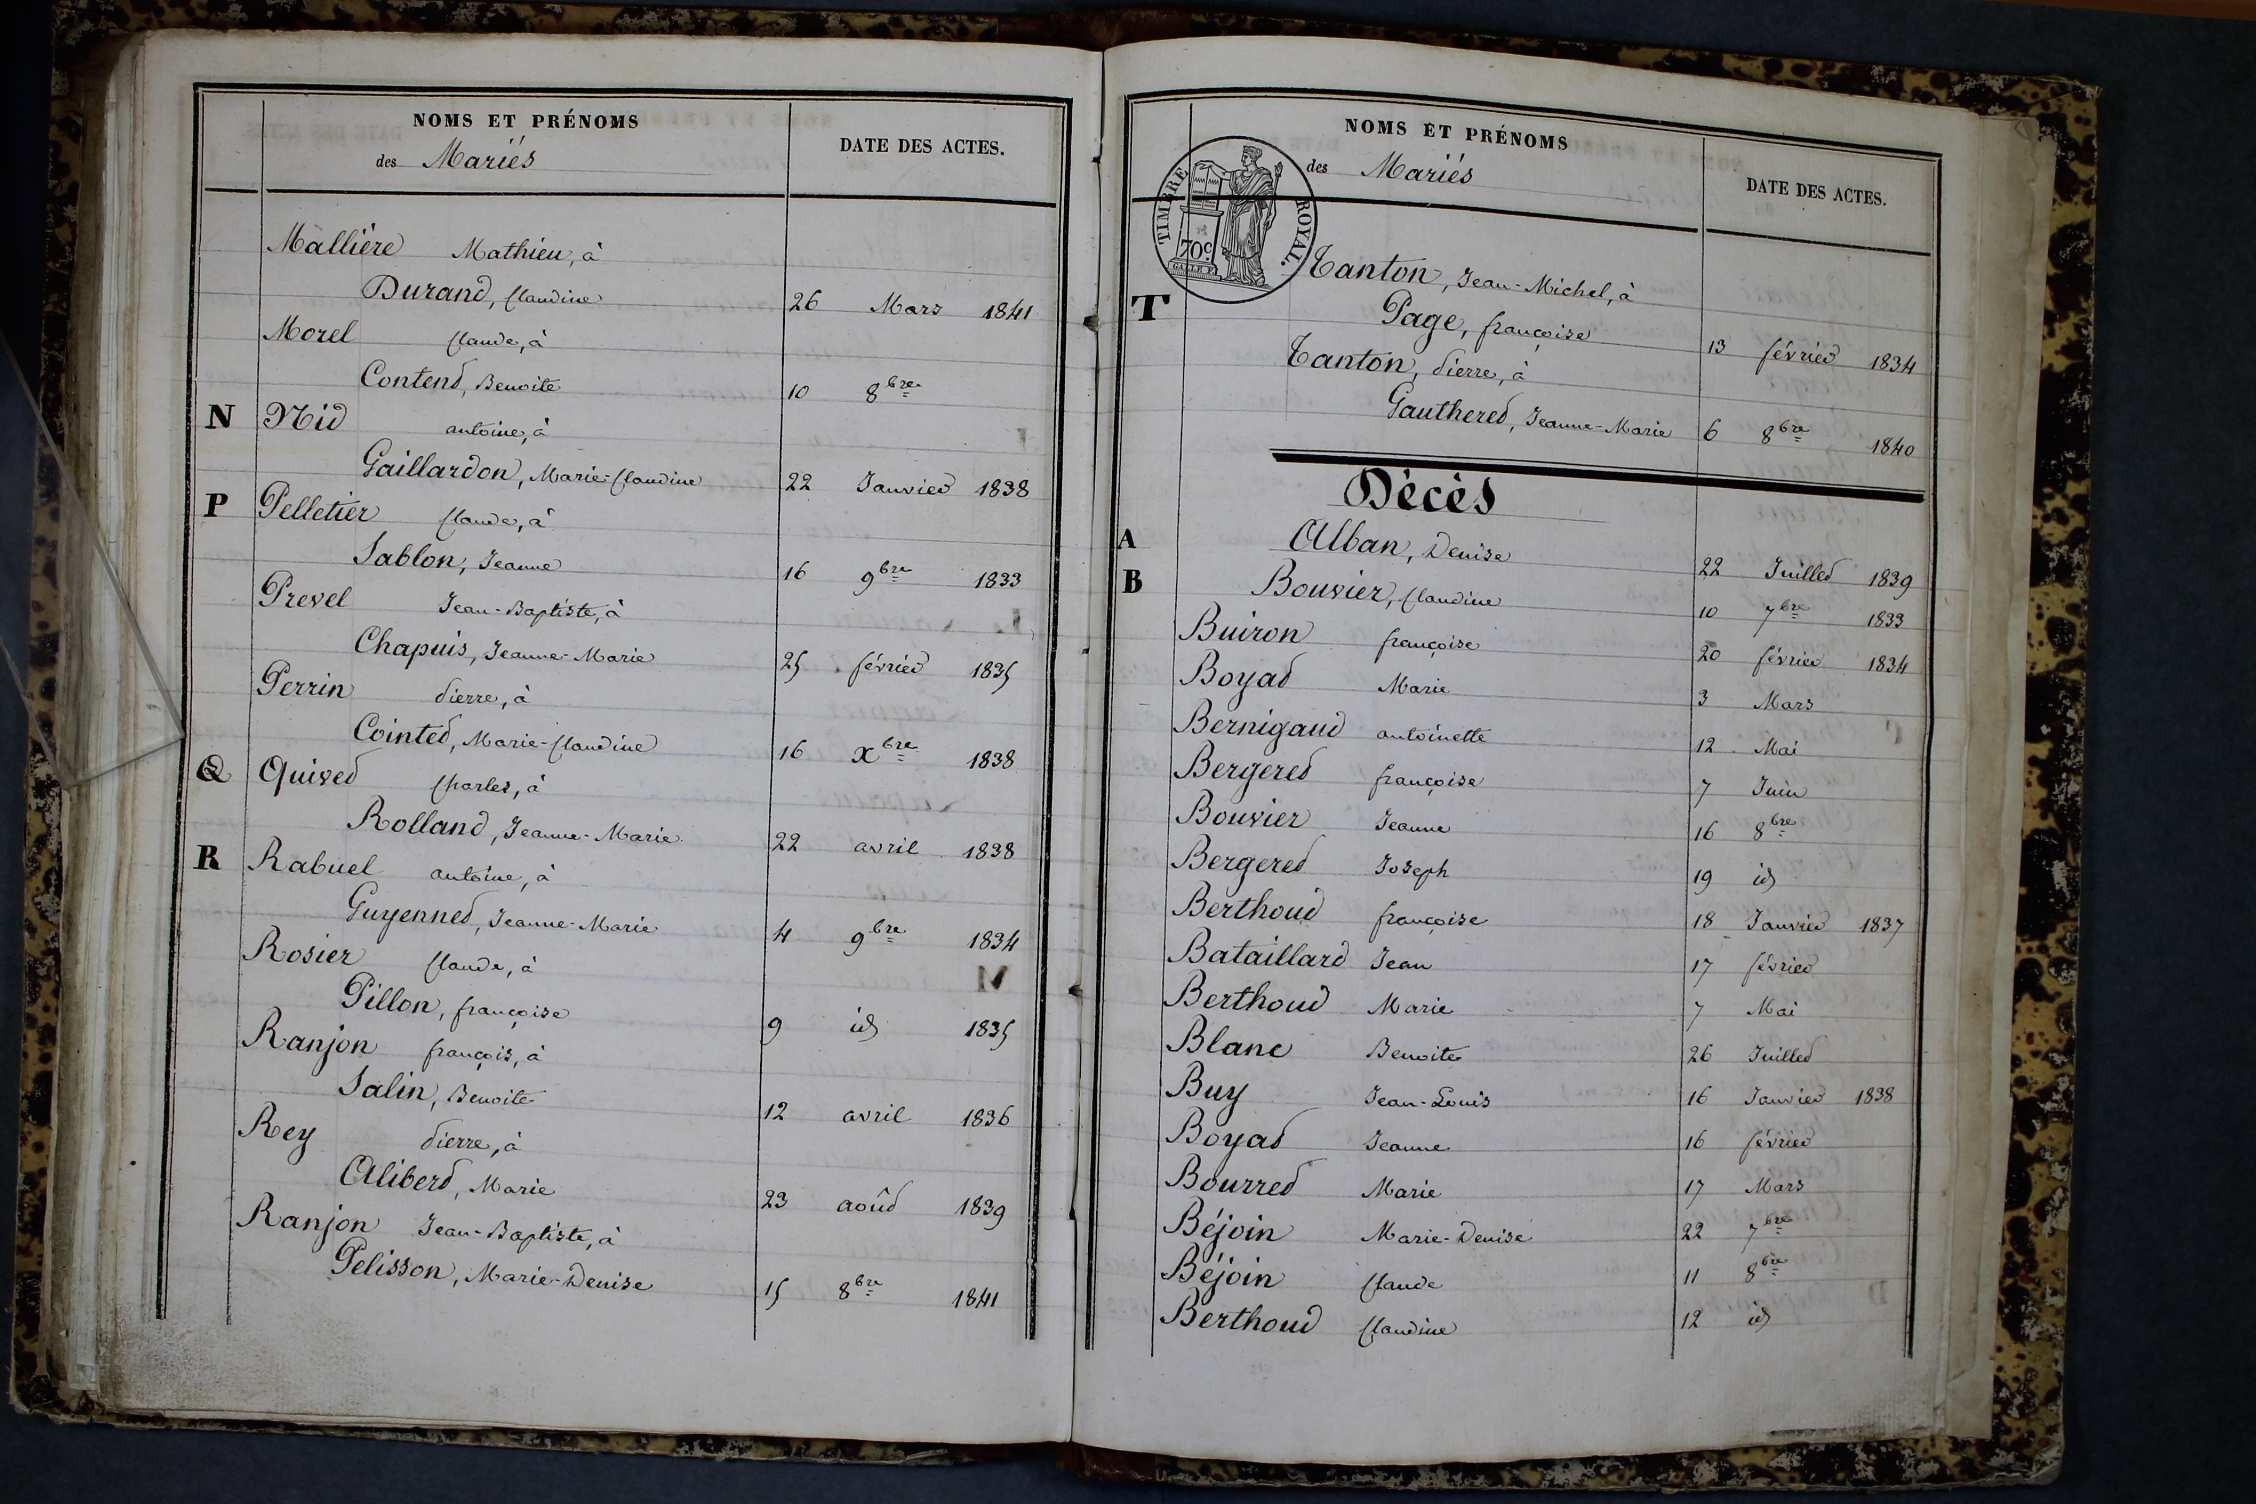 NOMS ET PRÉNOMS
des Mariés
DATE DES ACTES.
Mallière Mathieu, à
Durand, Claudine 26 Mars 1841
Morel Claude, à
Contend, Benoite 10 8bre
N Nid antoine, à
Gaillardon, Marie-Claudine 22 Janvier 1838
P Pelletier Claude, à
Sablon, Jeanne 16 9bre 1833
Prevel Jean-Baptiste, à
Chapuis, Jeanne-Marie 25 février 1835
Perrin Pierre, à
Cointet, Marie-Claudine 16 Xbre 1838
Q Quivet Charles, à
Rolland, Jeanne-Marie 22 avril 1838
R Rabuel antoine, à
Guyennet, Jeanne-Marie 4 9bre 1834
Rosier Claude, à
Pillon, françoise 9 id 1835
Ranjon françois, à
Salin, Benoite 12 avril 1836
Rey Pierre, à
Alibert, Marie 23 août 1839
Ranjon Jean-Baptiste, à
Pelisson, Marie-Denise 15 8bre 1841
NOMS ET PRÉNOMS
des Mariés
DATE DES ACTES.
TIMBRE ROYAL.
70c
T Tanton, Jean-Michel, à
Page, françoise 13 février 1834
Tanton, Pierre, à
Gautheret, Jeanne-Marie 6 8bre 1840
Décès
A Alban, Denise 22 Juillet 1839
B Bouvier, Claudine 10 7bre 1833
Buiron françoise 20 février 1834
Boyat Marie 3 Mars
Bernigaud antoinette 12 Mai
Bergeret françoise 7 Juin
Bouvier Jeanne 16 8bre
Bergeret Joseph 19 id
Berthoud françoise 18 Janvier 1837
Bataillard Jean 17 février
Berthoud Marie 7 Mai
Blanc Benoite 26 Juillet
Buy Jean-Louis 16 Janvier 1838
Boyat Jeanne 16 février
Bourret Marie 17 Mars
Béjoin Marie-Denise 22 7bre
Béjoin Claude 11 8bre
Berthoud Claudine 12 id